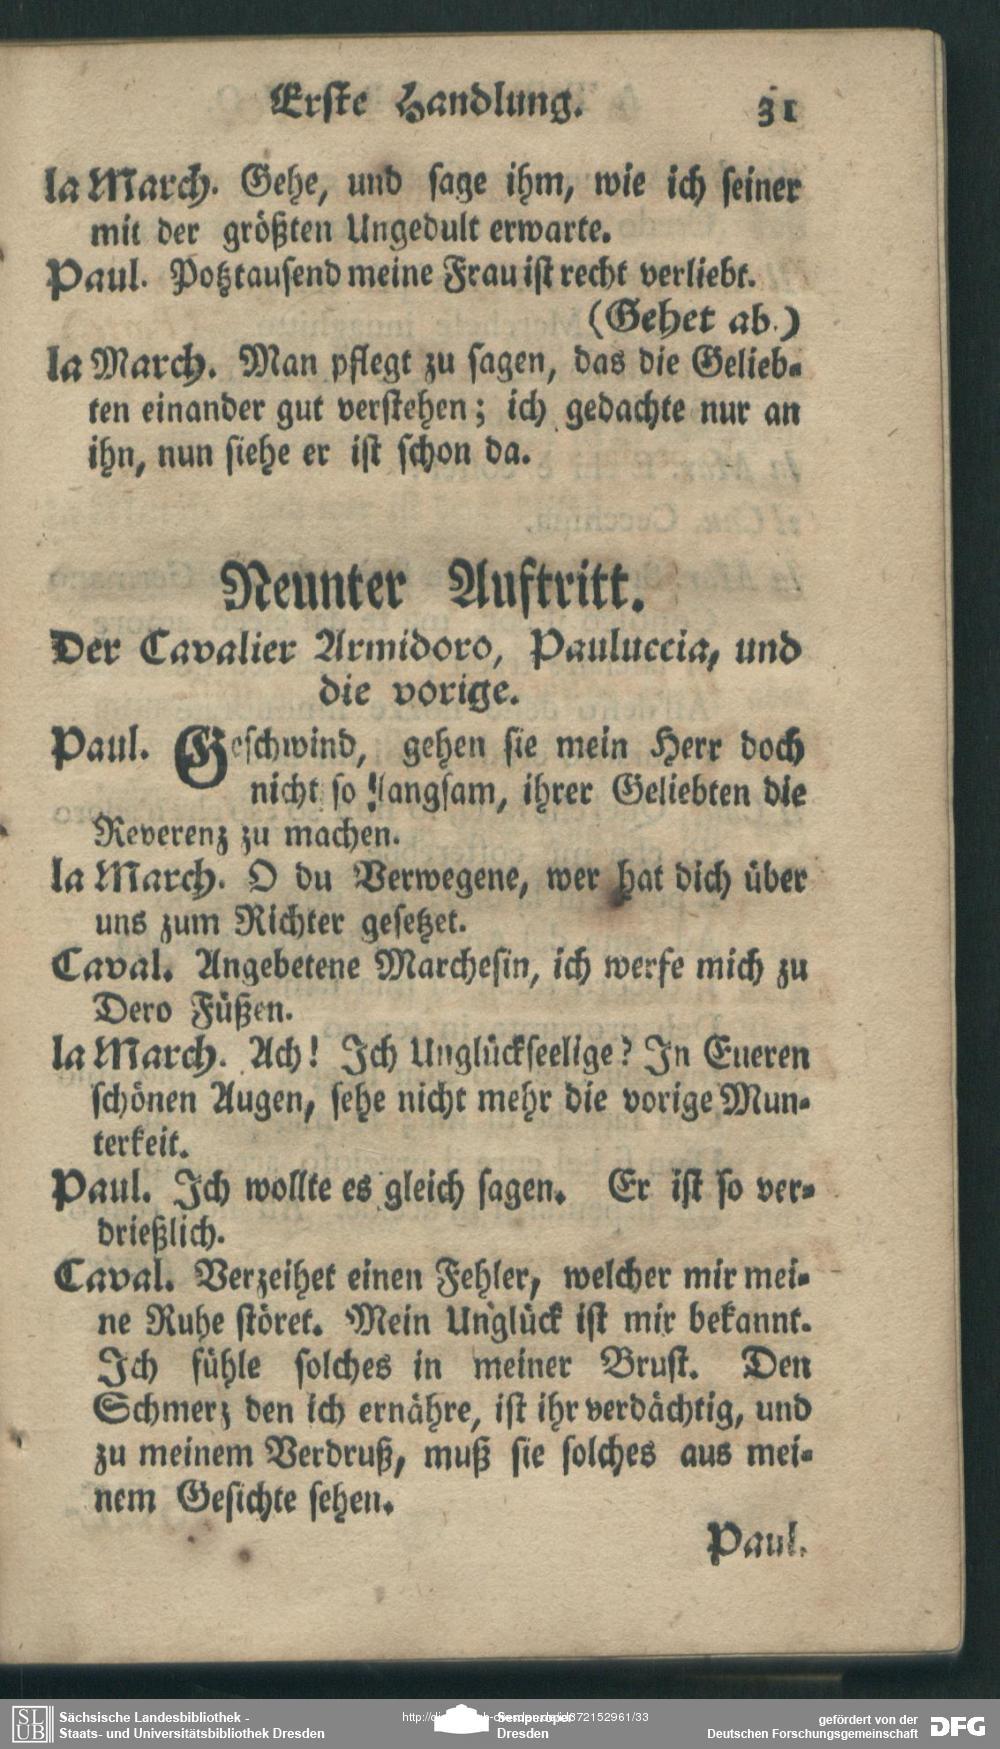 Erste Handlung. 31
la March. Gehe, und sage ihm, wie ich seiner
mit der größten Ungedult erwarte.
Paul. Potztausend meine Frau ist recht verliebt.
(Gehet ab.)
la March. Man pflegt zu sagen, das die Gelieb-
ten einander gut verstehen; ich gedachte nur an
ihn, nun siehe er ist schon da.
Neunter Auftritt.
Der Cavalier Armidoro, Pauluccia, und
die vorige.
Paul. Geschwind, gehen sie mein Herr doch
nicht so langsam, ihrer Geliebten die
Reverenz zu machen.
la March. O du Verwegene, wer hat dich über
uns zum Richter gesetzet.
Caval. Angebetene Marchesin, ich werfe mich zu
Dero Füßen.
la March. Ach! Ich Unglückseelige? In Eueren
schönen Augen, sehe nicht mehr die vorige Mun-
terkeit.
Paul. Ich wollte es gleich sagen. Er ist so ver-
drießlich.
Caval. Verzeihet einen Fehler, welcher mir mei-
ne Ruhe störet. Mein Unglück ist mir bekannt.
Ich fühle solches in meiner Brust. Den
Schmerz den ich ernähre, ist ihr verdächtig, und
zu meinem Verdruß, muß sie solches aus mei-
nem Gesichte sehen.
Paul.
SLUB
Sächsische Landesbibliothek -
Staats- und Universitätsbibliothek Dresden
Semperoper
Dresden
372152961/33
gefördert von der
Deutschen Forschungsgemeinschaft
DFG